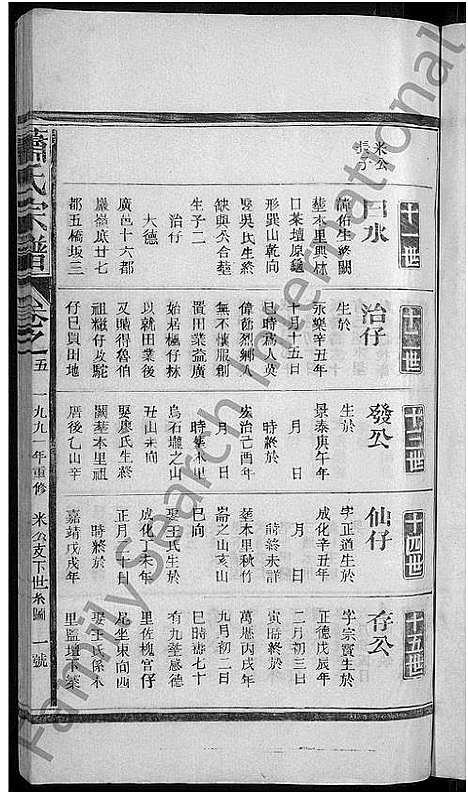 蕭氏宗譜
卷之
五
一九九一年重修
米公支下世系圖
一號
十一世
米公
長子
日水
佑生終闕
葬本里興林
口茶壇原
形巽山乾向
娶吳氏生終
缺與公合葬
生子二
治仔
大德
廣邑十六都
巖嶺底廿七
都五橋坂三
十二世
治仔
生於
永樂辛丑年
十月十五日
巳時為人英
偉節烈鄉人
無不懷服創
置田業益廣
始居楓仔林
以就田業後
又賊得魯伯
祖糍仔及駝
仔巳買田地
十三世
發公
生於
景泰庚午年
月 日
時終於
弘治己酉年
月 日
時葬本里
烏石壠之山
丑山未向
娶廖氏生終
闕葬本里祖
厝後乙山辛
十四世
仙仔
字正道生於
成化辛丑年
月 日
時終未詳
葬本里秋竹
崙之山亥山
巳向
娶王氏生於
成化丁未年
正月二十日
時終於
嘉靖戊戌年
十五世
存公
字宗寶生於
正德戊辰年
二月初三日
寅時終於
萬曆丙戌年
九月初二日
巳時壽七十
有九葬感德
里佐槐宮仔
尾坐東向西
娶王氏係本
里監壇下葉
FamilySearch International